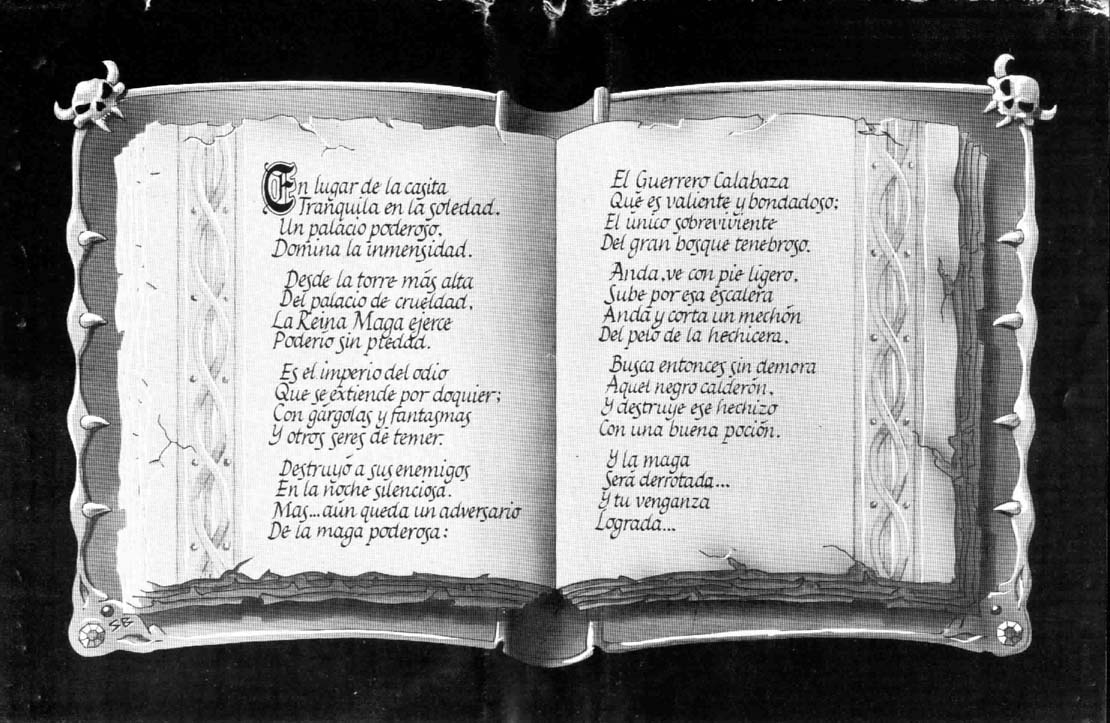 En lugar de la casita
Tranquila en la soledad.
Un palacio poderoso.
Domina la inmensidad.
Desde la torre más alta
Del palacio de crueldad.
La Reina Maga ejerce
Poderio sin piedad.
Es el imperio del odio
Que se extiende por doquier;
Con gárgolas y fantasmas
Y otros seres de temer.
Destruyó a sus enemigos
En la noche silenciosa.
Mas...aún queda un adversario
De la maga poderosa:
El Guerrero Calabaza
Que es valiente y bondadoso;
El único sobreviviente
Del gran bosque tenebroso.
Anda, ve con pie ligero.
Sube por esa escalera
Anda y corta un mechón
Del pelo de la hechicera.
Busca entonces sin demora
Aquel negro calderón.
Y destruye ese hechizo
Con una buena poción.
Y la maga
Será derrotada...
Y tu venganza
Lograda...
SB